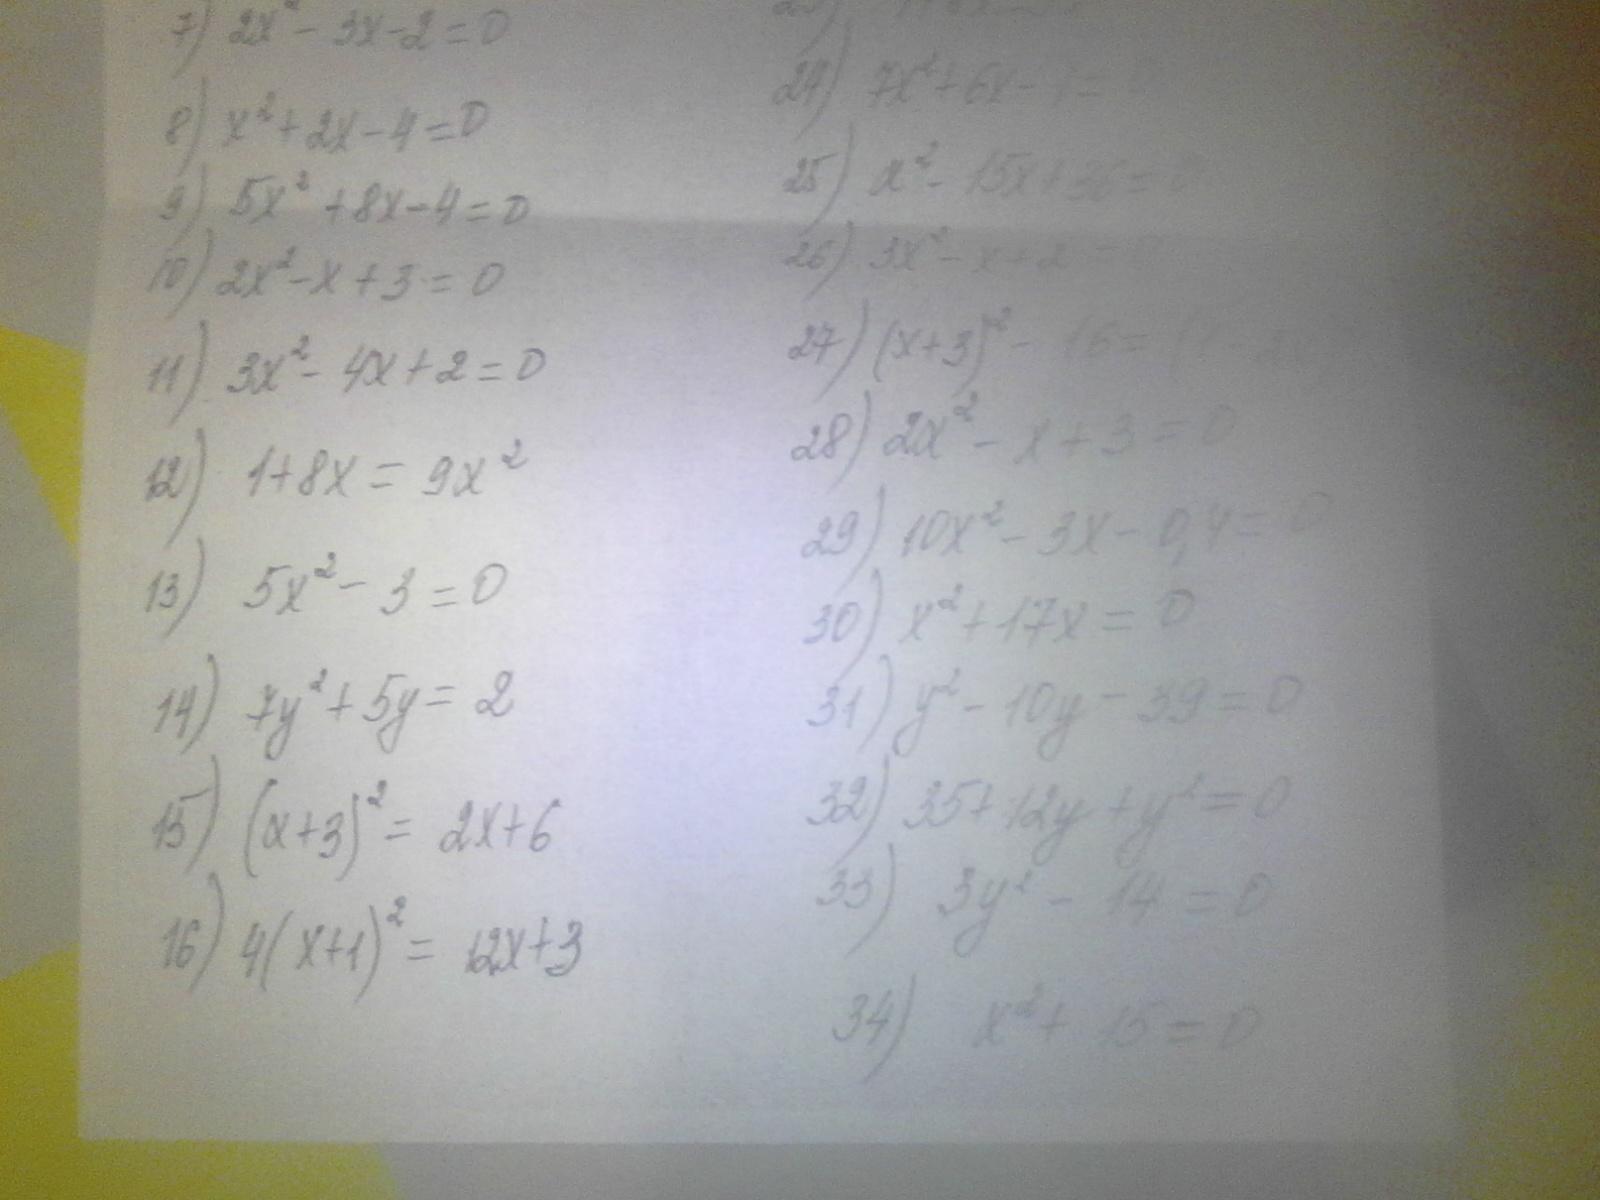 7) 2x² - 3x - 2 = 0
8) x² + 2x - 4 = 0
9) 5x² + 8x - 4 = 0
10) 2x² - x + 3 = 0
11) 3x² - 4x + 2 = 0
12) 1 + 8x = 9x²
13) 5x² - 3 = 0
14) 7y² + 5y = 2
15) (x+3)² = 2x+6
16) 4(x+1)² = 12x+3
24) 7x² + 6x - 1 =
25) x² - 15x + 36 = 0
26) 3x² - x + 2 = 0
27) (x+3)² - 16 =
28) 2x² - x + 3 = 0
29) 10x² - 3x - 0,4 = 0
30) x² + 17x = 0
31) y² - 10y - 39 = 0
32) 35 + 12y + y² = 0
33) 3y² - 14 = 0
34) x² + 15 = 0